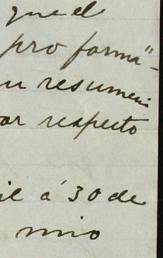 que el
pro forma"-
su resumen
or respecto
il á 30 de
mio